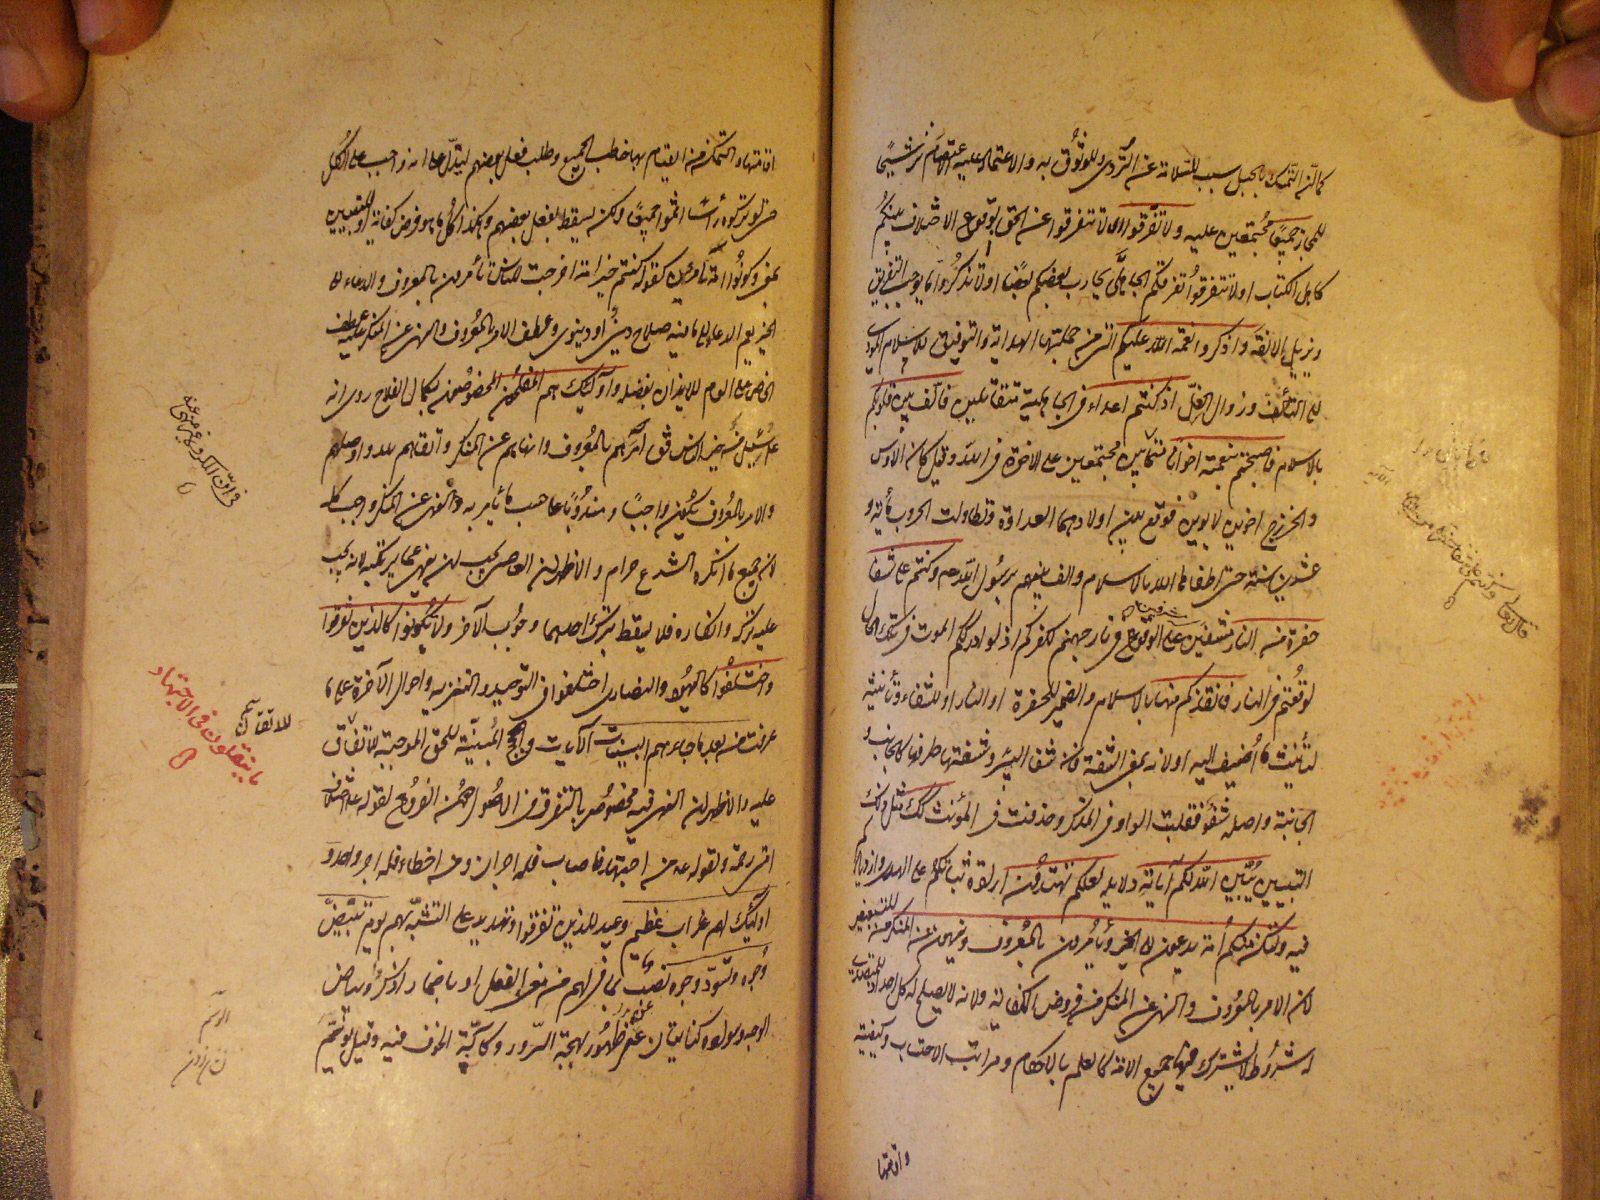 كما ان التمسك بالحبل سبب للسلامة عن التردي وللوثوق به والاعتماد عليه الاعتصام ترشيحا
للمجاز جميعا مجتمعين عليه ولا تفرقوا اى لا تتفرقوا عن الحق بوقوع الاختلاف بينكم
كاهل الكتاب او لا تتفرقوا تفرقكم الجاهلى يحارب بعضكم بعضا او لا تذكروا ما يوجب التفريق
ويزيل الالفة واذكروا نعمة الله عليكم التى من جملتها الهداية والتوفيق للاسلام المودى
الى التألف وزوال الغل اذ كنتم اعداء فى الجاهلية متقاتلين فألف بين قلوبكم
بالاسلام فاصبحتم بنعمته اخوانا متحابين مجتمعين على الاخوة فى الله وقيل كان الاوس
والخزرج اخوين لابوين فوقع بين اولادهما العداوة وتطاولت الحروب مأية و
عشرين سنة حتى اطفاها الله بالاسلام والف بينهم برسول الله صم وكنتم على شفا
حفرة من النار مشفين على الوقوع فى نار جهنم لكفركم اذ لو ادرككم الموت فى تلك الحال
لوقعتم فى النار فانقذكم منها بالاسلام والضمير للحفرة او النار او للشفاء وتأنيثه
لتأنيث ما اضيف اليه او لانه بمعنى الشفة فان شفا البئر وشفتها طرفها كالجانب و
الجانبة واصله شفو فقلبت الواو فى المذكر وحذفت فى المؤنث كذلك مثل ذلك
التبيين يبين الله لكم آياته دلايله لعلكم تهتدون ارادة ثباتكم على الهدى وازديادكم
فيه ولتكن منكم أمة يدعون الى الخير ويأمرون بالمعروف وينهون عن المنكر من للتبعيض
لان الامر بالمعروف والنهى عن المنكر من فروض الكفاية ولانه لا يصلح له كل احد اذ للمتصدى
له شروط لا يشترك فيها جميع الامة كالعلم بالاحكام ومراتب الاحتساب وكيفية
واقامتها
اقامتها والتمكن من القيام بها خاطب الجميع وطلب فعل بعضهم ليدل على انه واجب على الكل
حتى لو تركوه رأسا اثموا جميعا ولكن يسقط بفعل بعضهم وهكذا كل ما هو فرض كفاية او للتبيين
بمعنى وكونوا امة تأمرون كقوله كنتم خير امة اخرجت للناس تأمرون بالمعروف والدعاء الى
الخير يعم الدعاء الى ما فيه صلاح دينى او دنيوى وعطف الامر بالمعروف والنهى عن المنكر عليه عطف
الخاص على العام للايذان بفضله واولئك هم المفلحون المخصوصون بكمال الفلاح روى انه
عم سئل من خير الناس فقال آمرهم بالمعروف وانهاهم عن المنكر واتقاهم لله واوصلهم
والامر بالمعروف يكون واجبا ومندوبا على حسب ما يأمر به والنهى عن المنكر واجب كله
لان جميع ما انكره الشرع حرام والاظهر ان العاصى يجب ان ينهى عما يرتكبه لانه يجب
عليه تركه وانكاره فلا يسقط بترك احدهما وجوب الآخر ولا تكونوا كالذين تفرقوا
واختلفوا كاليهود والنصارى اختلفوا فى التوحيد والتنزيه واحوال الآخرة على ما
عرفت من بعد ما جاءهم البينات الآيات والحجج المبينة للحق الموجبة للاتفاق
عليه والاظهر ان النهى فيه مخصوص بالتفرق فى الاصول دون الفروع لقوله عم اختلاف
امتى رحمة ولقوله عم من اجتهد فاصاب فله اجران ومن اخطاء فله اجر واحد و
اولئك لهم عذاب عظيم وعيد للذين تفرقوا وتهديد على التشبه بهم يوم تبيض
وجوه وتسود وجوه نصب بما فى لهم من معنى الفعل او باضمار اذكر وبياض
الوجه وسواده كنايتان عن ظهور بهجة السرور وكآبة الخوف فيه وقيل يوسم
للاتقانى
ما ينقلون فى الاجتهاد